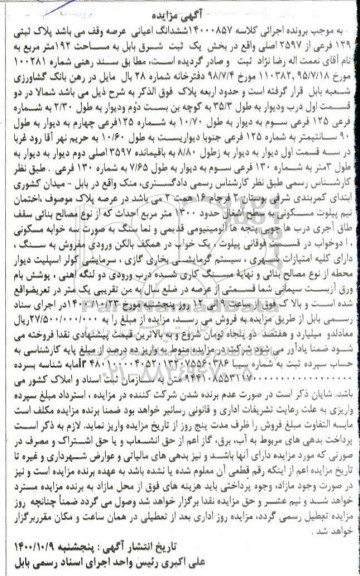 آگهی مزایده
به موجب پرونده اجرائی کلاسه ۱۴۰۰۰۸۵۷ ششدانگ اعیانی عرصه وقف می باشد پلاک ثبتی
۱۲۹ فرعی از ۲۵۹۷ اصلی واقع در بخش یک ثبت شرق بابل به مساحت ۱۹۲متر مربع به
نام آقای نعمت اله رضا نژاد ثبت و صادر گردیده است، مطابق سند رهنی شماره ۱۰۰۲۸۱
مورخ ۹۵/۷/۱۸ ,۱۱۰۳۸۲ مورخ ۹۸/۷/۴ دفترخانه شماره ۲۸ بابل مایل در رهن بانک کشاورزی
شعبه بابل قرار گرفته است و حدود اربعه پلاک فوق الذکر به شرح ذیل می باشد شمالا در دو
قسمت اول درب ودیوار به طول ۳۵/۳ به کوچه بن بست دوم ودیوار به طول ۲/۳۰ به شماره
۱۲۵ فرعی سوم به دیوار به طول ۱۰/۷۰ به شماره ۱۲۵فرعی چهارم به دیوار به طول
۹۰ سانتیمتر به شماره ۱۲۵ فرعی جنوبا دیواریست به طول ۱۰/۶۰ به حریم نهر آقا رود غربا
در سه قسمت اول دیوار به دیوار به طول ۸/۸۰ به باقیمانده ۳۵۹۷ اصلی دوم دیوار به دیوار به
طول ۳متر به شماره ۱۳۰ فرعی سوم به دیوار به طول ۷/۶۵ به شماره ۱۳۰ فرعی . طبق نظر
کارشناس رسمی طبق نظر کارشناس رسمی دادگستری، ملک واقع در بابل - میدان کشوری
ابتدای کمربندی شرقی روستای
نیم پیلوت مسکونی به سطح اشغال حدود ۱۳۰۰ متر مربع احداث که از نوع مصالح بنائی سقف
طاق آجری درب ها چوبی پنجه ها آلومینیومی قدیمی و نما سنگ به صورت سه خوابه مسکونی
دوخواب در قسمت فوقانی پیلوت ، یک خواب در همکف بالکن ورودی مفروش به سنگ ،
دارای کلیه امتیازات شهری ، سیستم گرمایشی بخاری گازی ، سرمایشی کولر اسپلیت دیوار
محطه از نوع مصالح بنائی و نهایة مسنگ کاری شده درب ورودی دو لنگه آهنی ، پوشش بام
ورق آزبست سیمانی شما قسمتی از عرصه در ضلع شمال به من تقریبی یک متر در تعریضواقع
شده است و پالاک فوق از ساعت ۹ الی ۱۲ روز پنجشنبه مورخ ۱۴۰۰/۱۰/۲۳ در اجرای سناد
رسمی بابل از طریق مزایده به فروش می رسد، مزایده از مبلغ را به ۲۷/۵۰۰/۰۰۰/۰۰۰ریال
معادلدو میلیارد و هفتصد و پنجاه تومان شروع و به بالاترین قیمت پیشنهادی نقدا فروخته می
شود ضمنا یادآور می شود شرکت در مزایده منوط به واریز ده درصد از مبلغ پایه کارشناسی به
حساب سپرده ثبت به شماره سیبا
سازمان ثبت اسناد و املاک کشور می
باشد، شایان ذکر است در صورت عدم برنده شدن شرکت کننده در مزایده ، استرداد مبلغ سپرده
واریزی به علت رعایت تشریفات اداری و قانونی رسانبر خواهد بود ضمنا برنده مزایده مکلف است
مابه التفاوت مبلغ فروش را ظرف مدت پنج روز از تاریخ مزایده واریز نماید. لازم به ذکر است
پرداخت بدهی های مربوط به آب، برق، گاز اعم از حق انشعاب و یا حق اشتراک و مصرف در
صورتی که مورد مزایده دارای آنها باشد و نیز بدهی های مالیاتی و عوارض شهرداری و غیره تا
تاریخ مزایده اعم از اینکه رقم قطعی آن معلوم شده یا نشده باشد به عهده برنده مزایده است و نیز
در صورت وجود مازاد، وجوه پرداختی باید هزینه های فوق از محل مازاد به برنده مزایده مسترد
خواهد شد و نیم عشر و حق مزایده نقدا برگزار خواهد شد وصول می گردد ضمناً چنانچه روز
مزایده تعطیل رسمی گردد، مزایده روز اداری بعد از تعطیلی در همان ساعت و مکان مقرربرگزار
خواهد شد .
تاریخ انتشار آگهی : پنجشنبه ۱۴۰۰/۱۰/۹
علی اکبری رئیس واحد اجرای اسناد رسمی بابل